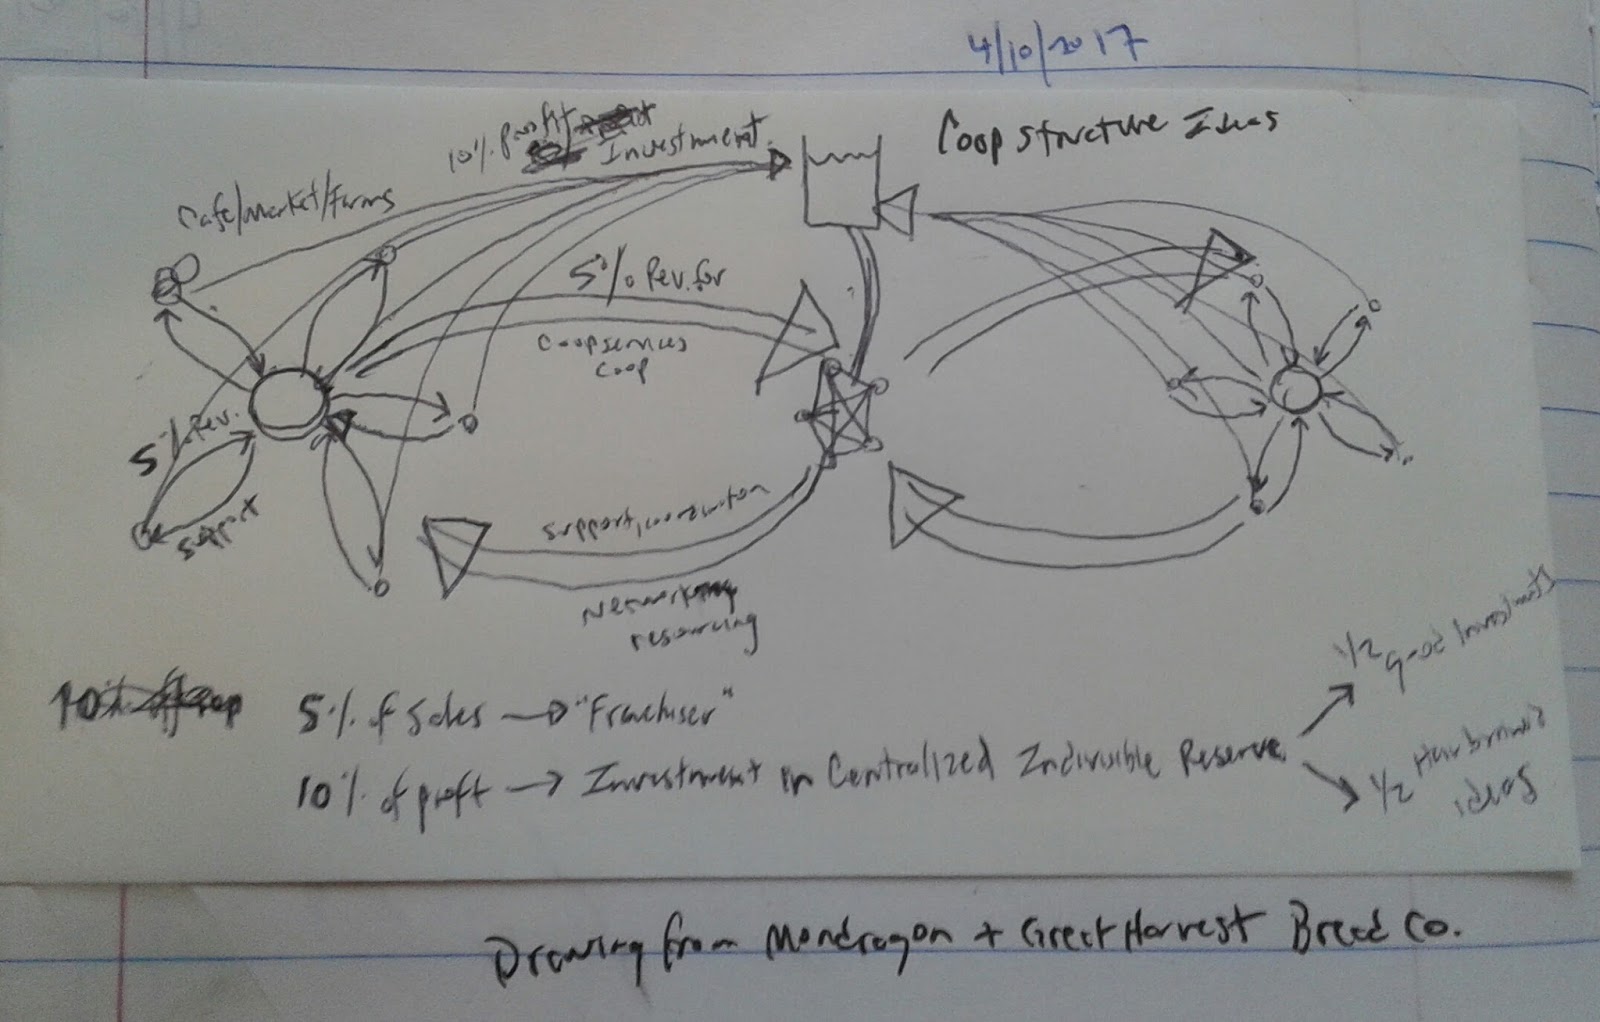 4/10/2017
Coop structure Ideas
10% profit
Investment
Cafe/market/Farms
5% Rev. for
Coop services
Coop
5% Rev.
support
support, coordination
Networking
resourcing
5% of Sales → "Franchiser"
10% of profit → Investment in Centralized Indivisible Reserve
1/2 good Investments
1/2 Hairbrained
ideas
Drawing from Mondragon + Great Harvest Bread Co.